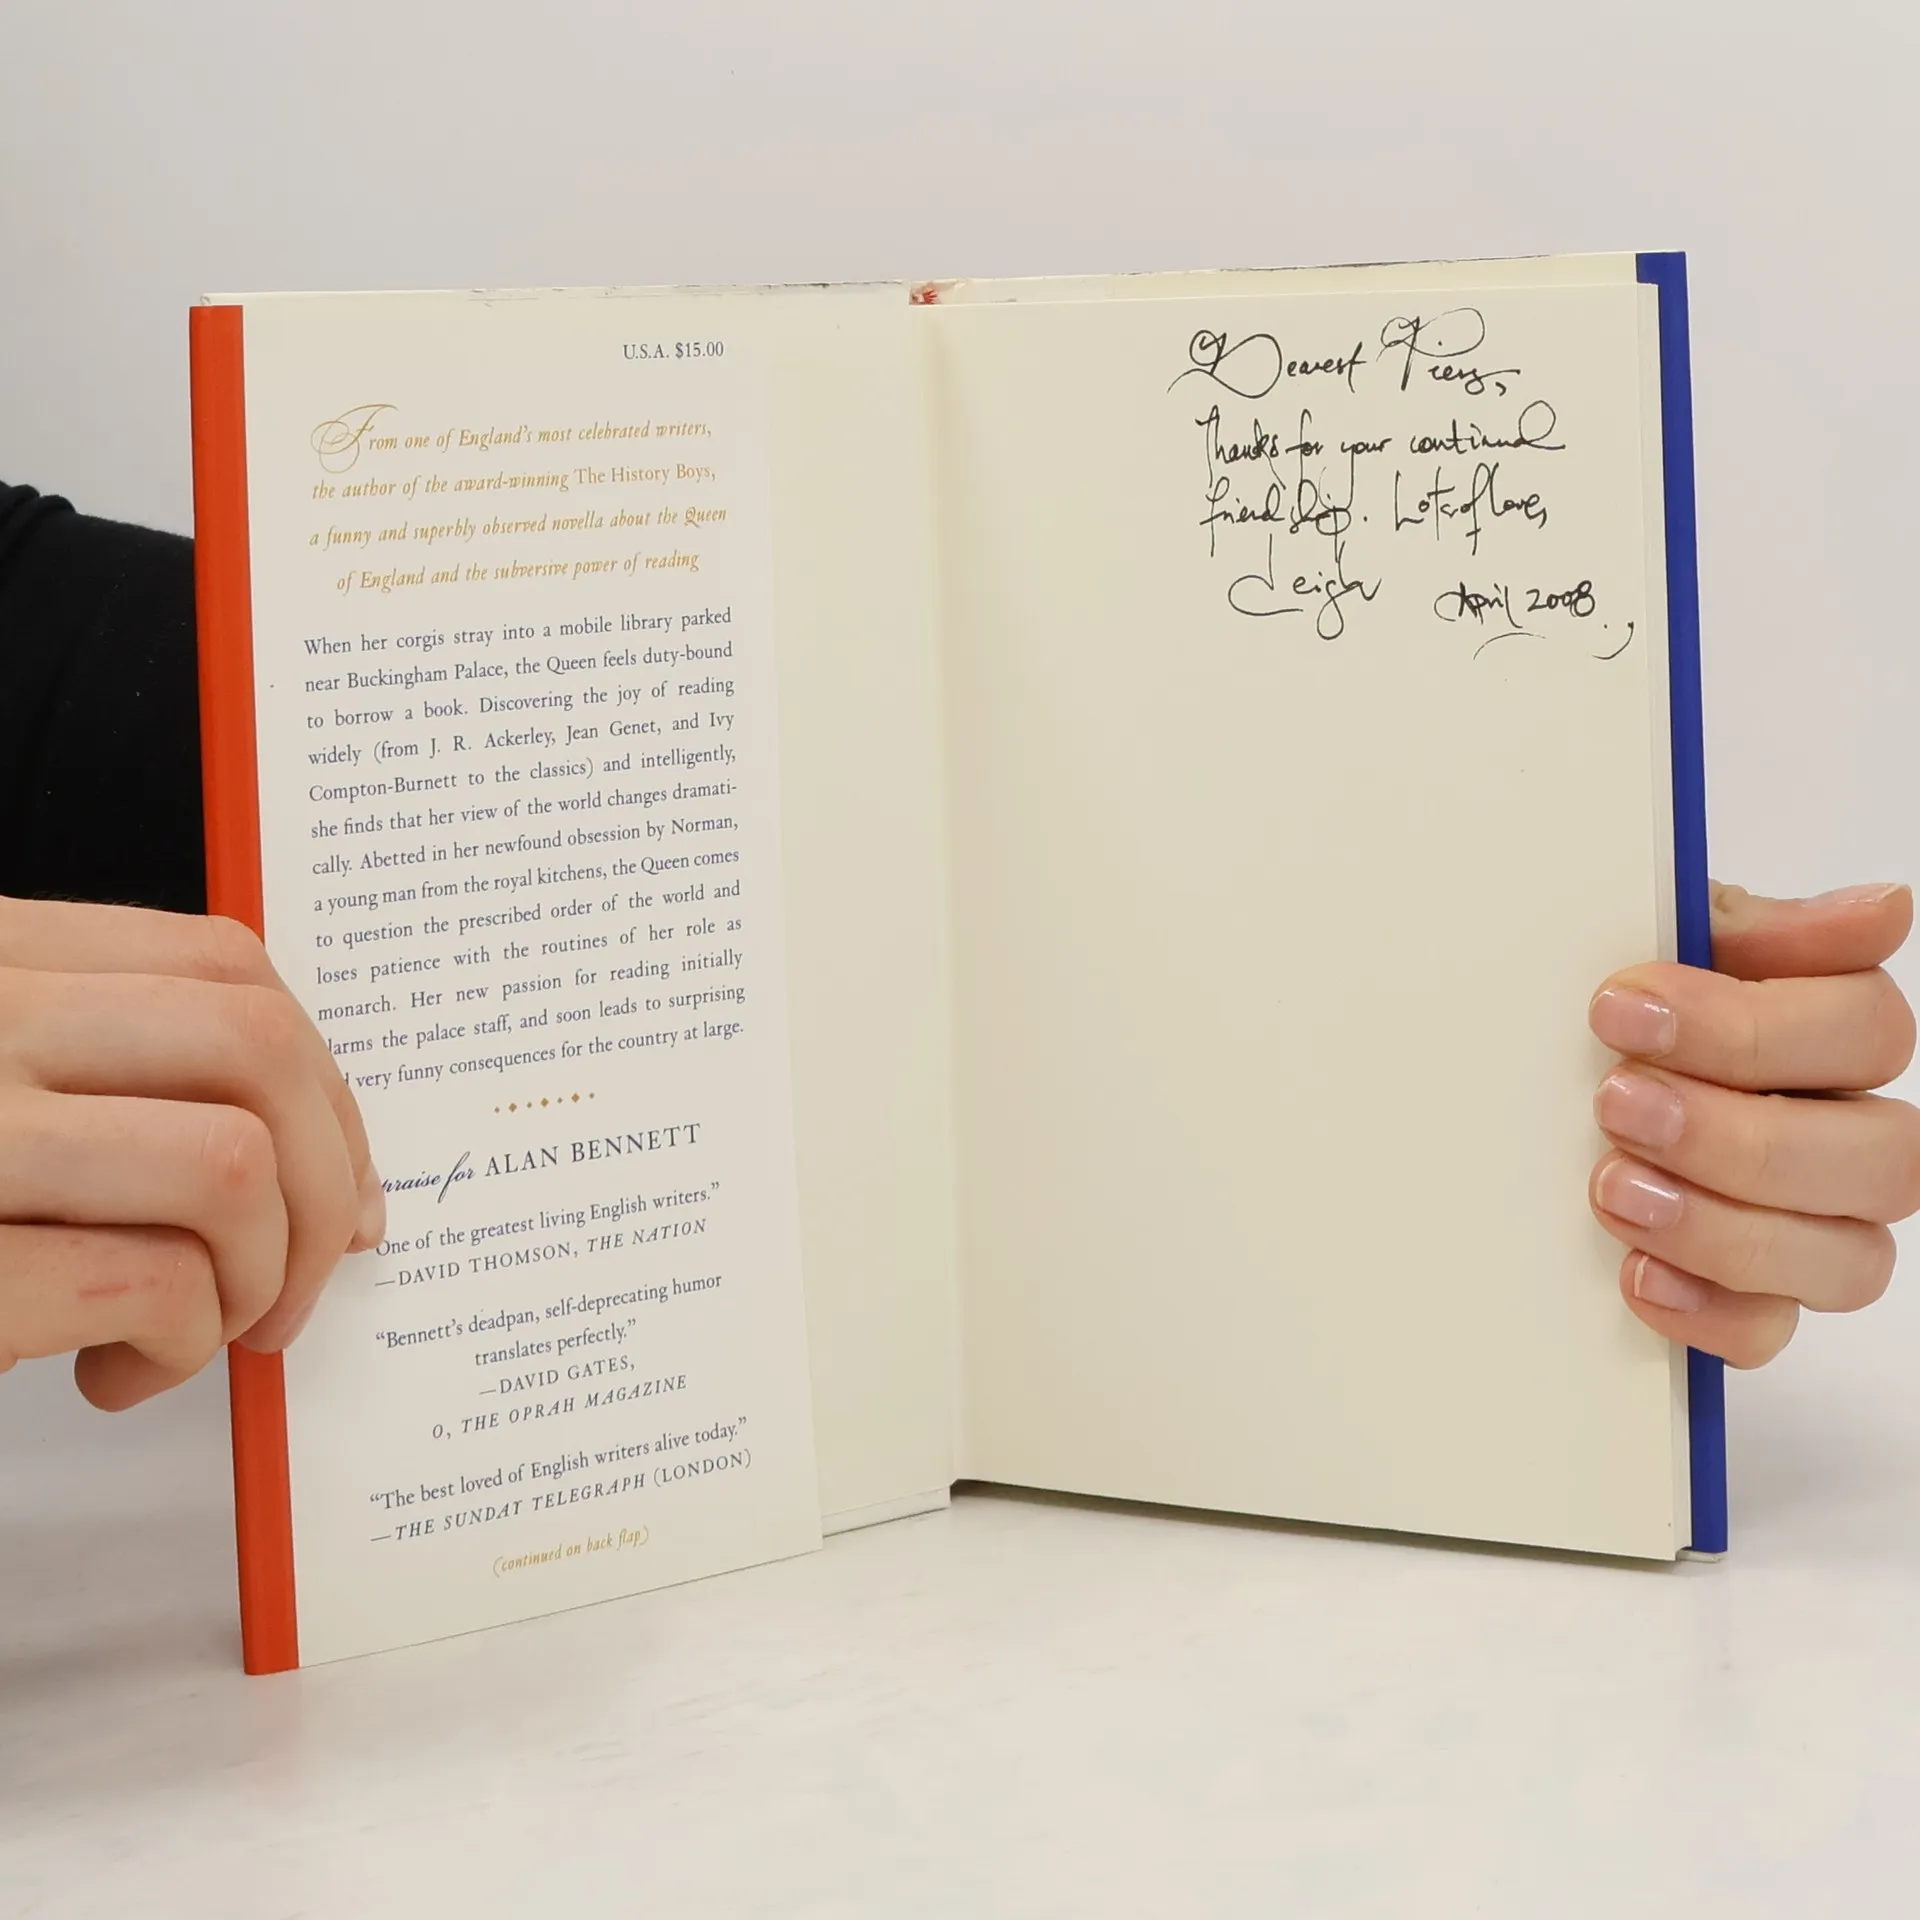 U.S.A. $15.00
From one of England's most celebrated writers,
the author of the award-winning The History Boys,
a funny and superbly observed novella about the Queen
of England and the subversive power of reading
When her corgis stray into a mobile library parked
near Buckingham Palace, the Queen feels duty-bound
to borrow a book. Discovering the joy of reading
widely (from J. R. Ackerley, Jean Genet, and Ivy
Compton-Burnett to the classics) and intelligently,
she finds that her view of the world changes dramati-
cally. Abetted in her newfound obsession by Norman,
a young man from the royal kitchens, the Queen comes
to question the prescribed order of the world and
loses patience with the routines of her role as
monarch. Her new passion for reading initially
larms the palace staff, and soon leads to surprising
very funny consequences for the country at large.
praise for ALAN BENNETT
One of the greatest living English writers."
—DAVID THOMSON, THE NATION
"Bennett's deadpan, self-deprecating humor
translates perfectly."
—DAVID GATES,
O, THE OPRAH MAGAZINE
"The best loved of English writers alive today."
—THE SUNDAY TELEGRAPH (LONDON)
(continued on back flap)
Dearest
Thanks for your continual
friendship. Lots of love,
Leigh April 2008.